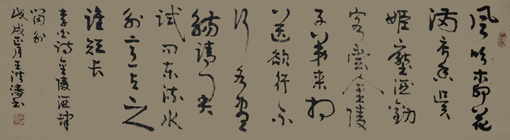 風吹柳花
滿店香吳
姬壓酒勸
客嘗金陵
子弟來相
送欲行不
行各盡
觴請君
試問東流水
別意與之
誰短長
李白詩金陵酒肆
留別
戊戌